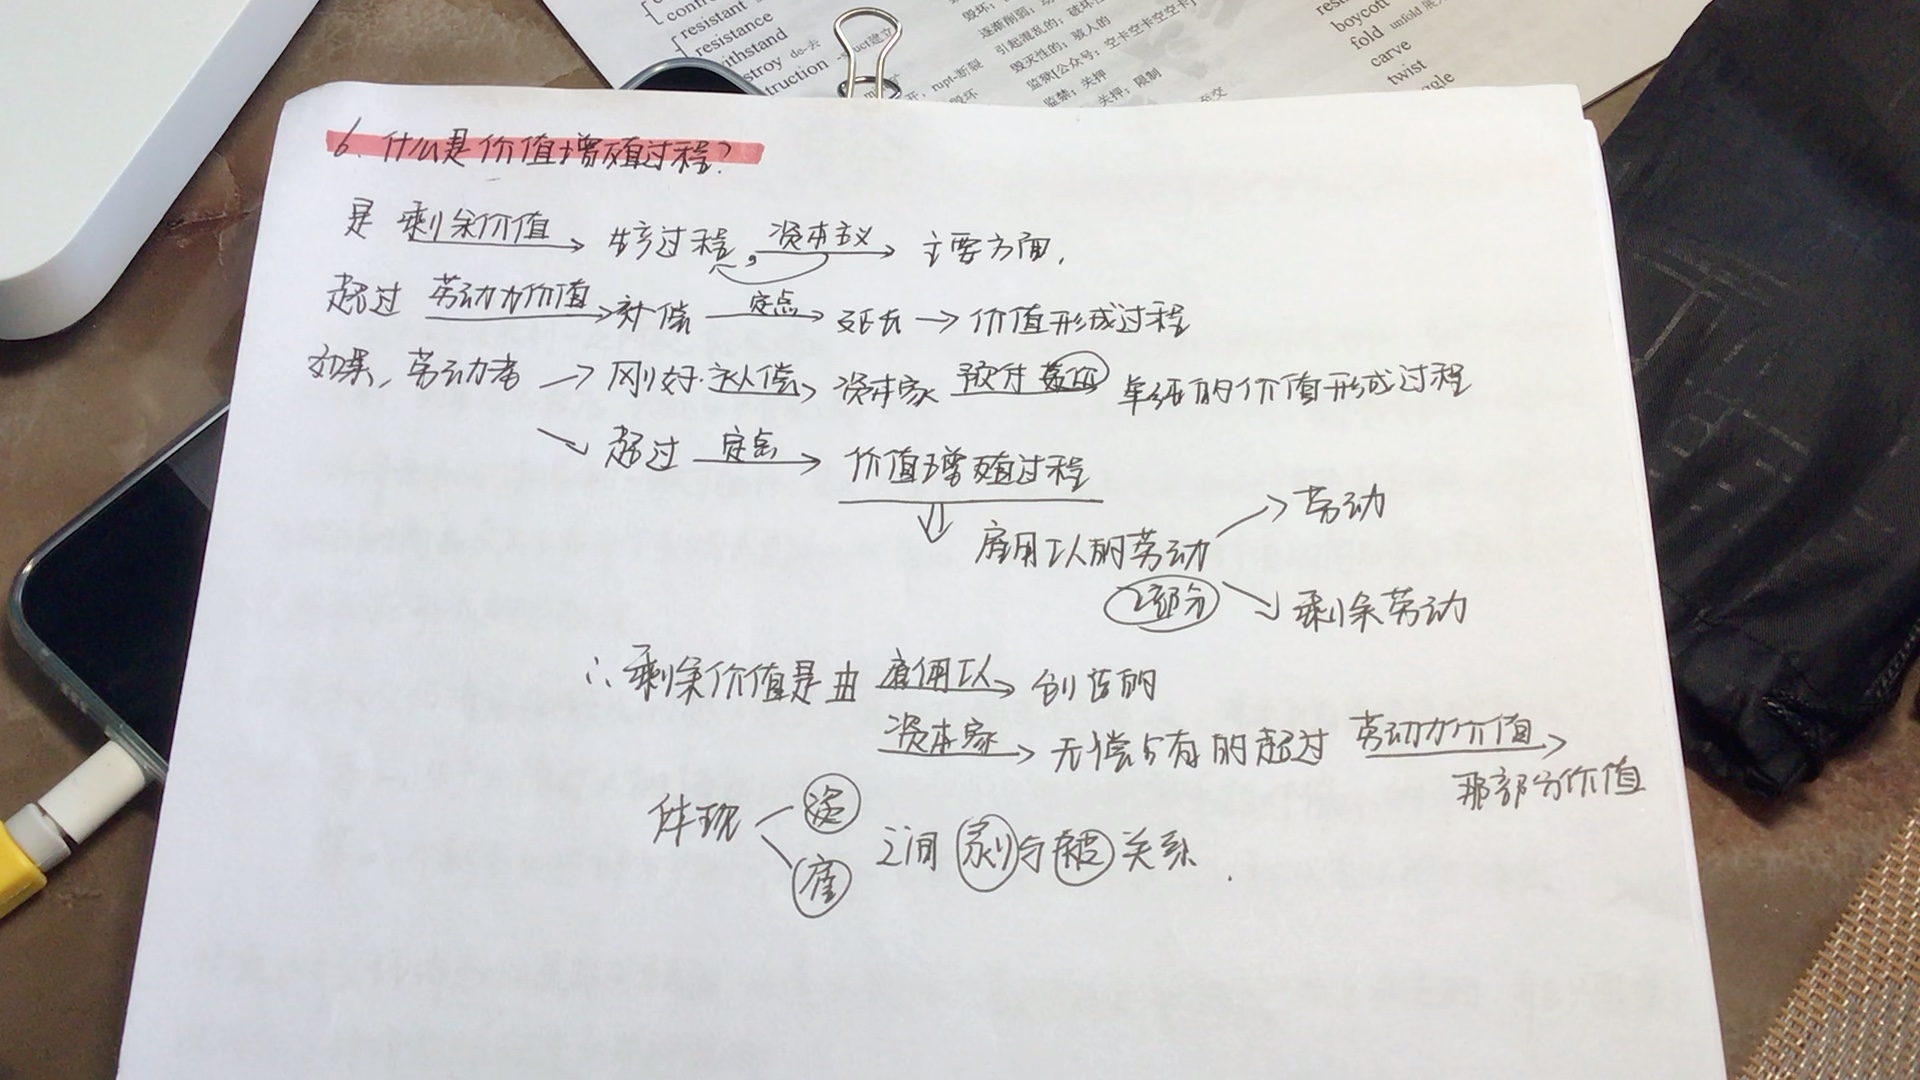 conf
resistant
resistance
ithstand
stroy de-去
truction -struct建立
毁坏;
逐渐削弱;
引起混乱的; 破坏性
毁灭性的; 骇人的
监狱[公众号: 空卡空卡空空卡]
监禁; 关押
关押; 限制
rupt-断裂
毁坏
至交
resi
boycott
fold unfold 展
carve
twist
ggle
6. 什么是价值增殖过程?
是 剩余价值 → 生产过程, 资本主义 → 主要方面,
超过 劳动力价值 → 补偿 定点 → 延长 → 价值形成过程
如果, 劳动者 → 刚好 补偿 → 资本家 预付 单纯的价值形成过程
↘ 超过 定点 → 价值增殖过程
⇓ 雇用工人的劳动 → 劳动
2部分 ↘ 剩余劳动
∴ 剩余价值是由 雇佣工人 → 创造的
资本家 → 无偿占有的超过 劳动力价值 →
那部分价值
体现 资
雇 之间 剥与被关系.